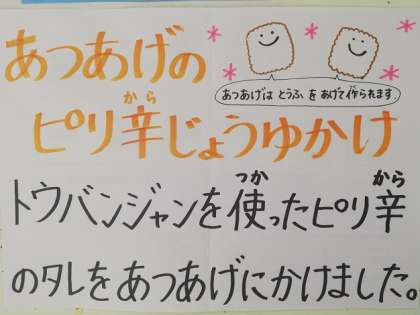 あつあげの
あつあげは とうふ を あげて作られます.
ピリ辛じょうゆかけ
から
トウバンジャンを使ったピリ辛
つか
から
のタレをあつあげにかけました。